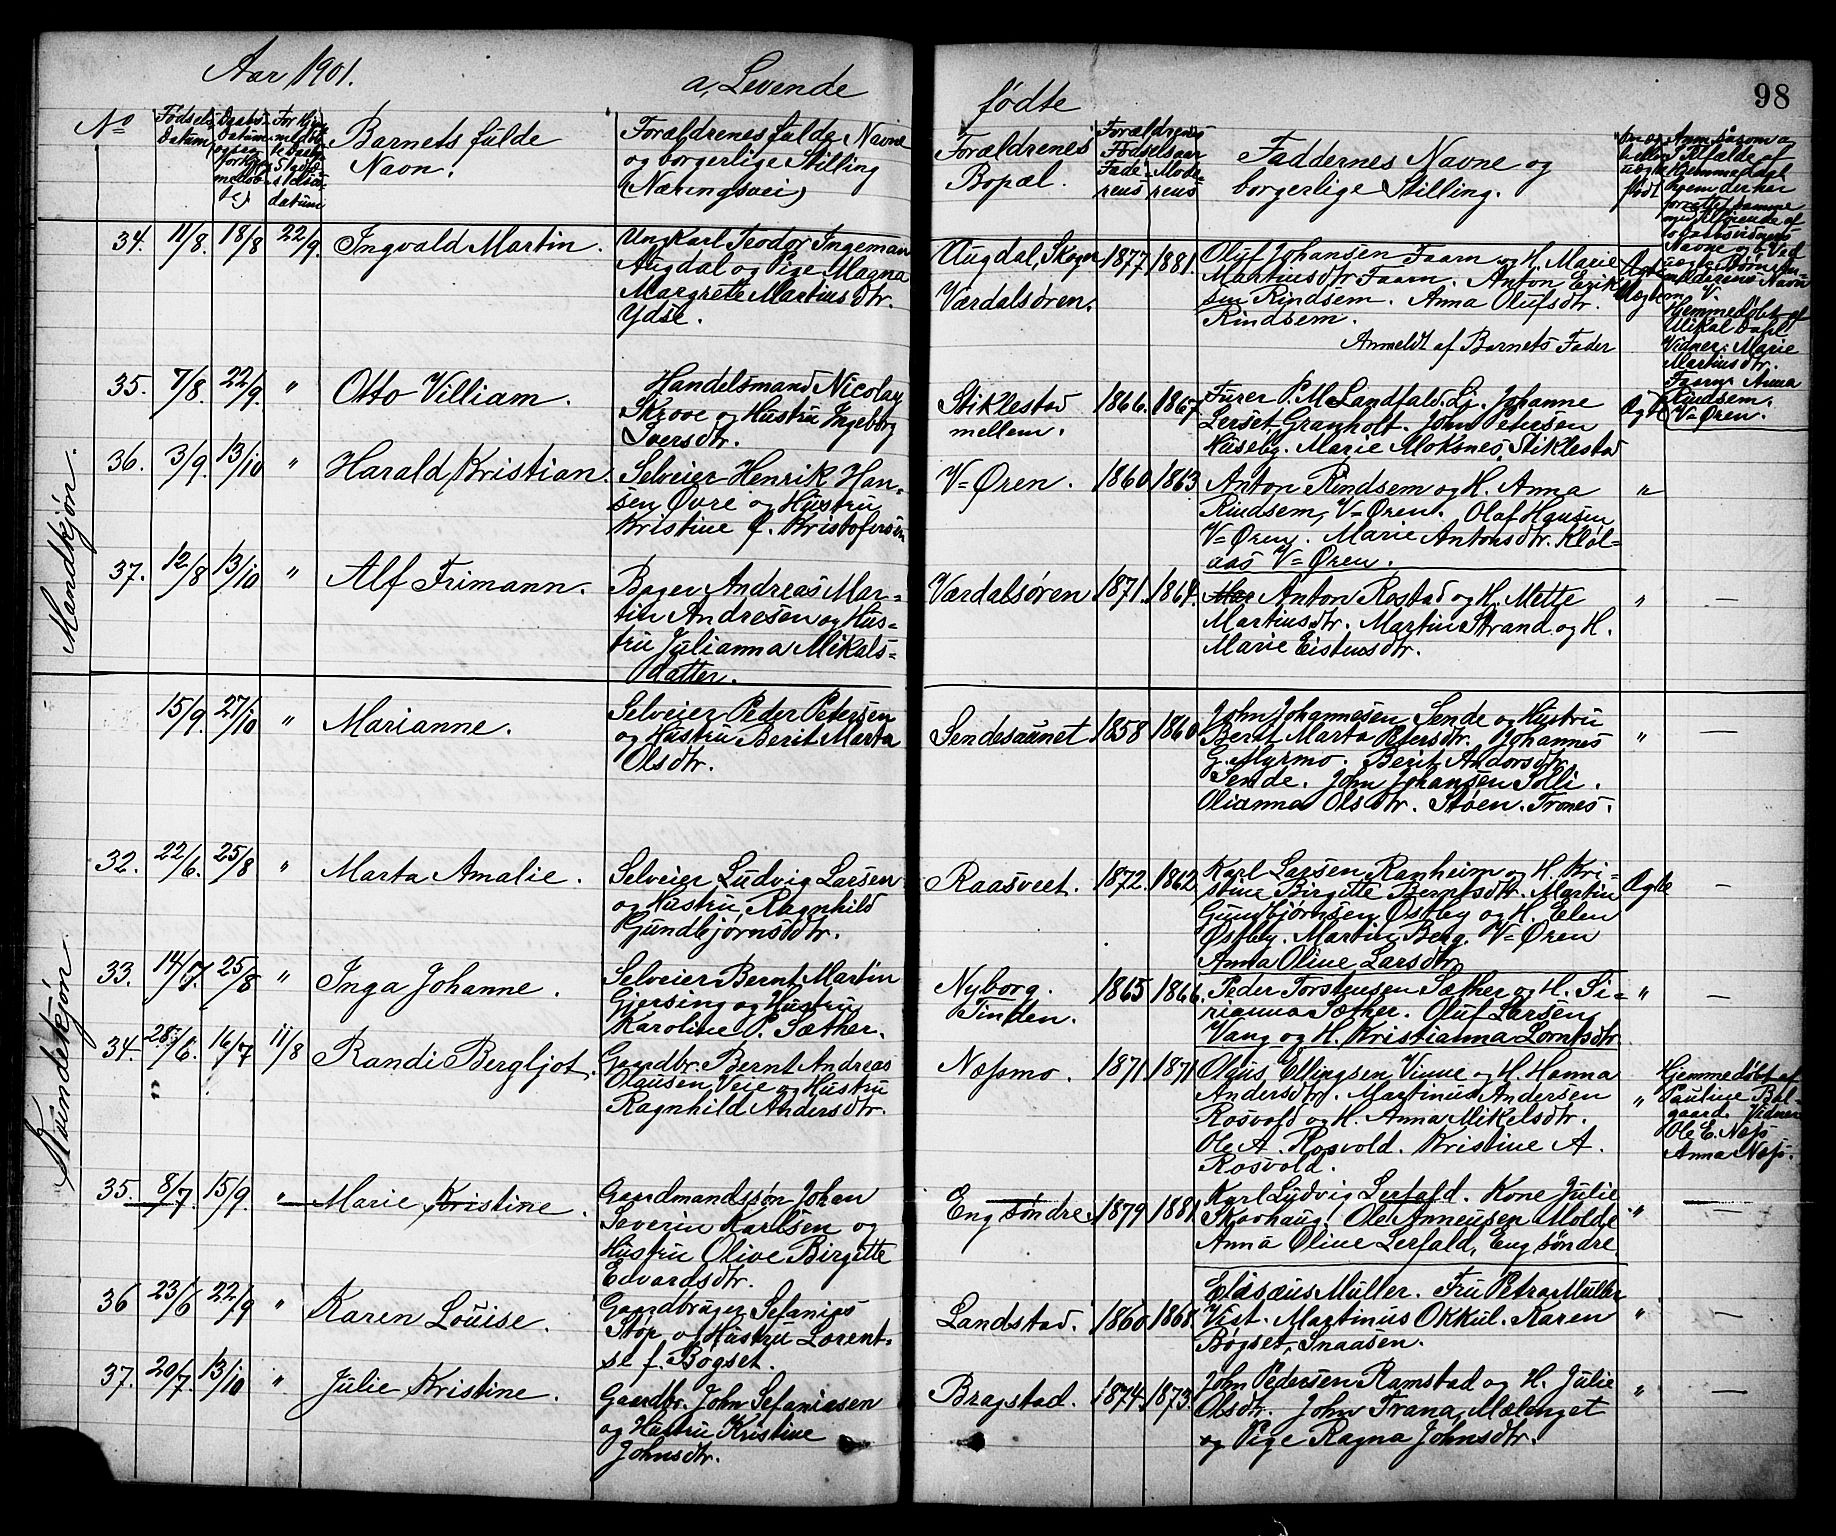 Aar 1901.
a, Levende
fødte
98
No
Fødsels Datum
Barnets fulde
Navn.
Forældrenes fulde Navne
og borgerlige Stilling
(Næringsvei)
Forældrenes
Bopæl.
Forældrenes
Fødselsaar
Fade-rens
Mode-rens
Faddernes Navne og
borgerlige Stilling.
Mandkjøn.
34. 11/8. 18/8 22/9. Ingvald Martin.
Ungkarl Teodor Ingeman
Augdal og Pige Magna
Margrete Martinsdtr.
Ydse.
Augdal, Skogn
Værdalsøren.
1877. 1881.
Oluf Johansen Faarn og H. Marie
Martinsdtr Faarn. Anton Erik
sen Rindsem. Anna Olufsdtr.
Rindsem.
Anmeldt af Barnets Fader
Hjemmedøbt af
Mikal Dahl
Vidner: Marie
Martinsdtr.
Faarn. Anna
Rindsem.
V=Øren.
35. 7/8. 22/9. " Otto Villiam.
Handelsmand Nicolay
Skrove og Hustru Ingeborg
Iversdtr.
Stiklestad
mellem.
1866. 1867.
Furer P. M. Landfald. Lj. Johanne
Lerset Granholt. John Petersen
Huseby. Marie Moksnes, Stiklestad
Ægte
36. 3/9. 13/10 " Harald Kristian.
Selveier Henrik Han-
sen Øvre og Hustru
Kristine f. Kristofersen
V=Øren. 1860. 1863
Anton Rindsem og H. Anna
Rindsem, V=Øren. Olaf Hansen
V=Øren. Marie Antonsdtr. Kløl-
aas V=Øren.
"
37. 12/8 13/10 " Alf Frimann.
Bager Andreas Mar-
tin Andresen og Hus-
tru Julianna Mikals-
datter.
Værdalsøren 1871. 1864.
Anton Rostad og H. Mette
Martinsdtr. Martin Strand og H.
Marie Eistensdtr.
" —
Kvindekjøn.
15/9. 27/10 " Marianne.
Selveier Peder Petersen
og Hustru Berit Marta
Olsdtr.
Sendesaunet 1858 1860
John Johannesen Sende og Hustru
Berit Marta Petersdtr. Johannes
G. Myrmo. Berit Andorsdtr.
Sende. John Johansen Solli.
Olianna Olsdtr. Støen. Trones.
" —
32. 22/6. 25/8 " Marta Amalie.
Selveier Ludvig Larsen
og Hustru Ragnhild
Gundbjørnsdtr.
Raasveet. 1872. 1862.
Karl Larsen Ranheim og H. Kri-
stine Birgitte Berntsdtr. Martin
Gundbjørnsen Østby og H. Elen
Østby. Martin Berg. V=Øren
Anna Oline Larsdtr.
Ægte —
33. 14/7. 25/8 " Inga Johanne.
Selveier Bernt Martin
Gjersing og Hustru
Karoline P. Sæther.
Nyborg.
Tinden.
1865 1866.
Peder Torstensen Sæther og H. Si-
rianna Sæther. Oluf Larsen
Vang og H. Kristianna Lorntsdtr.
" —
34. 28/6. 16/7 11/8 Randi Bergljot.
Gaardbr. Bernt Andreas
Olausen Veie og Hustru
Ragnhild Andersdtr.
Næssmo. 1871. 1871
Olaus Ellingsen Vinne og H. Hanna
Andersdtr. Martinus Andersen
Rosvold og H. Anna Mikelsdtr.
Ole A. Rosvold. Kristine A.
Rosvold.
"
Hjemmedøbt af
Pauline Bal-
gaard. Vidner
Ole E. Næss
Anna Næss.
35. 8/7. 15/9. " Marie Kristine.
Gaardmandssøn Johan
Severin Karlsen og
Hustru Olive Birgitte
Edvardsdtr.
Eng søndre 1879 1881
Karl Ludvig Lerfald. Kone Julie
Skavhaug. Ole Anneusen Molde
Anna Oline Lerfald, Eng søndre.
" —
36 23/6 22/9 " Karen Louise.
Gaardbruger Sefanias
Stør og Hustru Lorent-
se f. Bogset.
Landstad. 1860 1868.
Elisæus Müller. Fru Petra Müller
Vist. Martinus Okkul. Karen
Bøgset, Snaasen.
" —
37. 20/7. 13/10 " Julie Kristine.
Gaardbr. John Sefaniasen
og Hustru Kristine
Johnsdtr.
Bragstad. 1874. 1873.
John Pedersen Ramstad og H. Julie
Olsdtr. John Trana, Mælenget
og Pige Ragna Johnsdtr.
" —